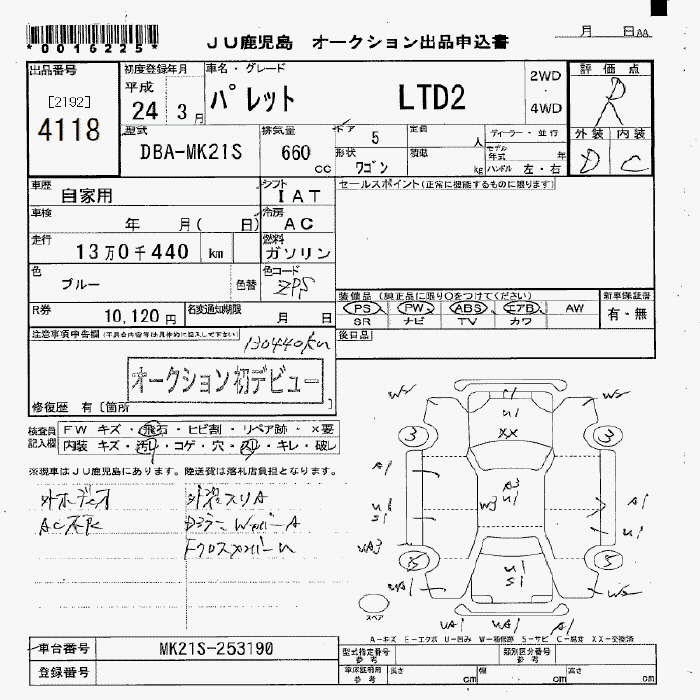 *0016225*
JU鹿児島 オークション出品申込書
月 日AA
出品番号
[2192]
4118
初度登録年月
平成
24 3月
車名・グレード
パレット LTD2
2WD
・
4WD
評価点
D
外装 内装
D C
型式
DBA-MK21S
排気量
660
cc
ドア
5
形状
ワゴン
定員
人
積載
kg
ディーラー・並行
モデル年式 年
ハンドル 左・右
車歴 自家用
シフト IAT
車検 年 月( 日)
冷房 AC
走行 13万0千440 km
燃料 ガソリン
色 ブルー 色替
色コード ZPS
R券 10,120円
名変通知期限 月 日
セールスポイント(正常に機能するものに限ります)
装備品(純正品に限り○をつけてください)
PS PW ABS エアB AW
SR ナビ TV カワ
新車保証書
有・無
後日品
注意事項申告欄
130440km
オークション初デビュー
修復歴 有 [箇所 ]
検査員記入欄
FW キズ・飛石・ヒビ割・リペア跡・×要
内装 キズ・汚れ・コゲ・穴・スリ・キレ・破レ
※現車はJU鹿児島にあります。陸送費は落札店負担となります。
外ホデイオ
AC不良
W2 U1 XX W2
3 3
A1 A3
U1 W3 U1 A1
S1 U1
UA3
U1
S1
スペア
UA1 WA1 A1
A-キズ E-エクボ U-凹み W-補修跡 S-サビ C-腐食 XX-交換済
車台番号 MK21S-253190
登録番号
型式指定番号
参考
類別区分番号
参考
車庫証明用
参考
長さ cm 幅 cm 高さ cm